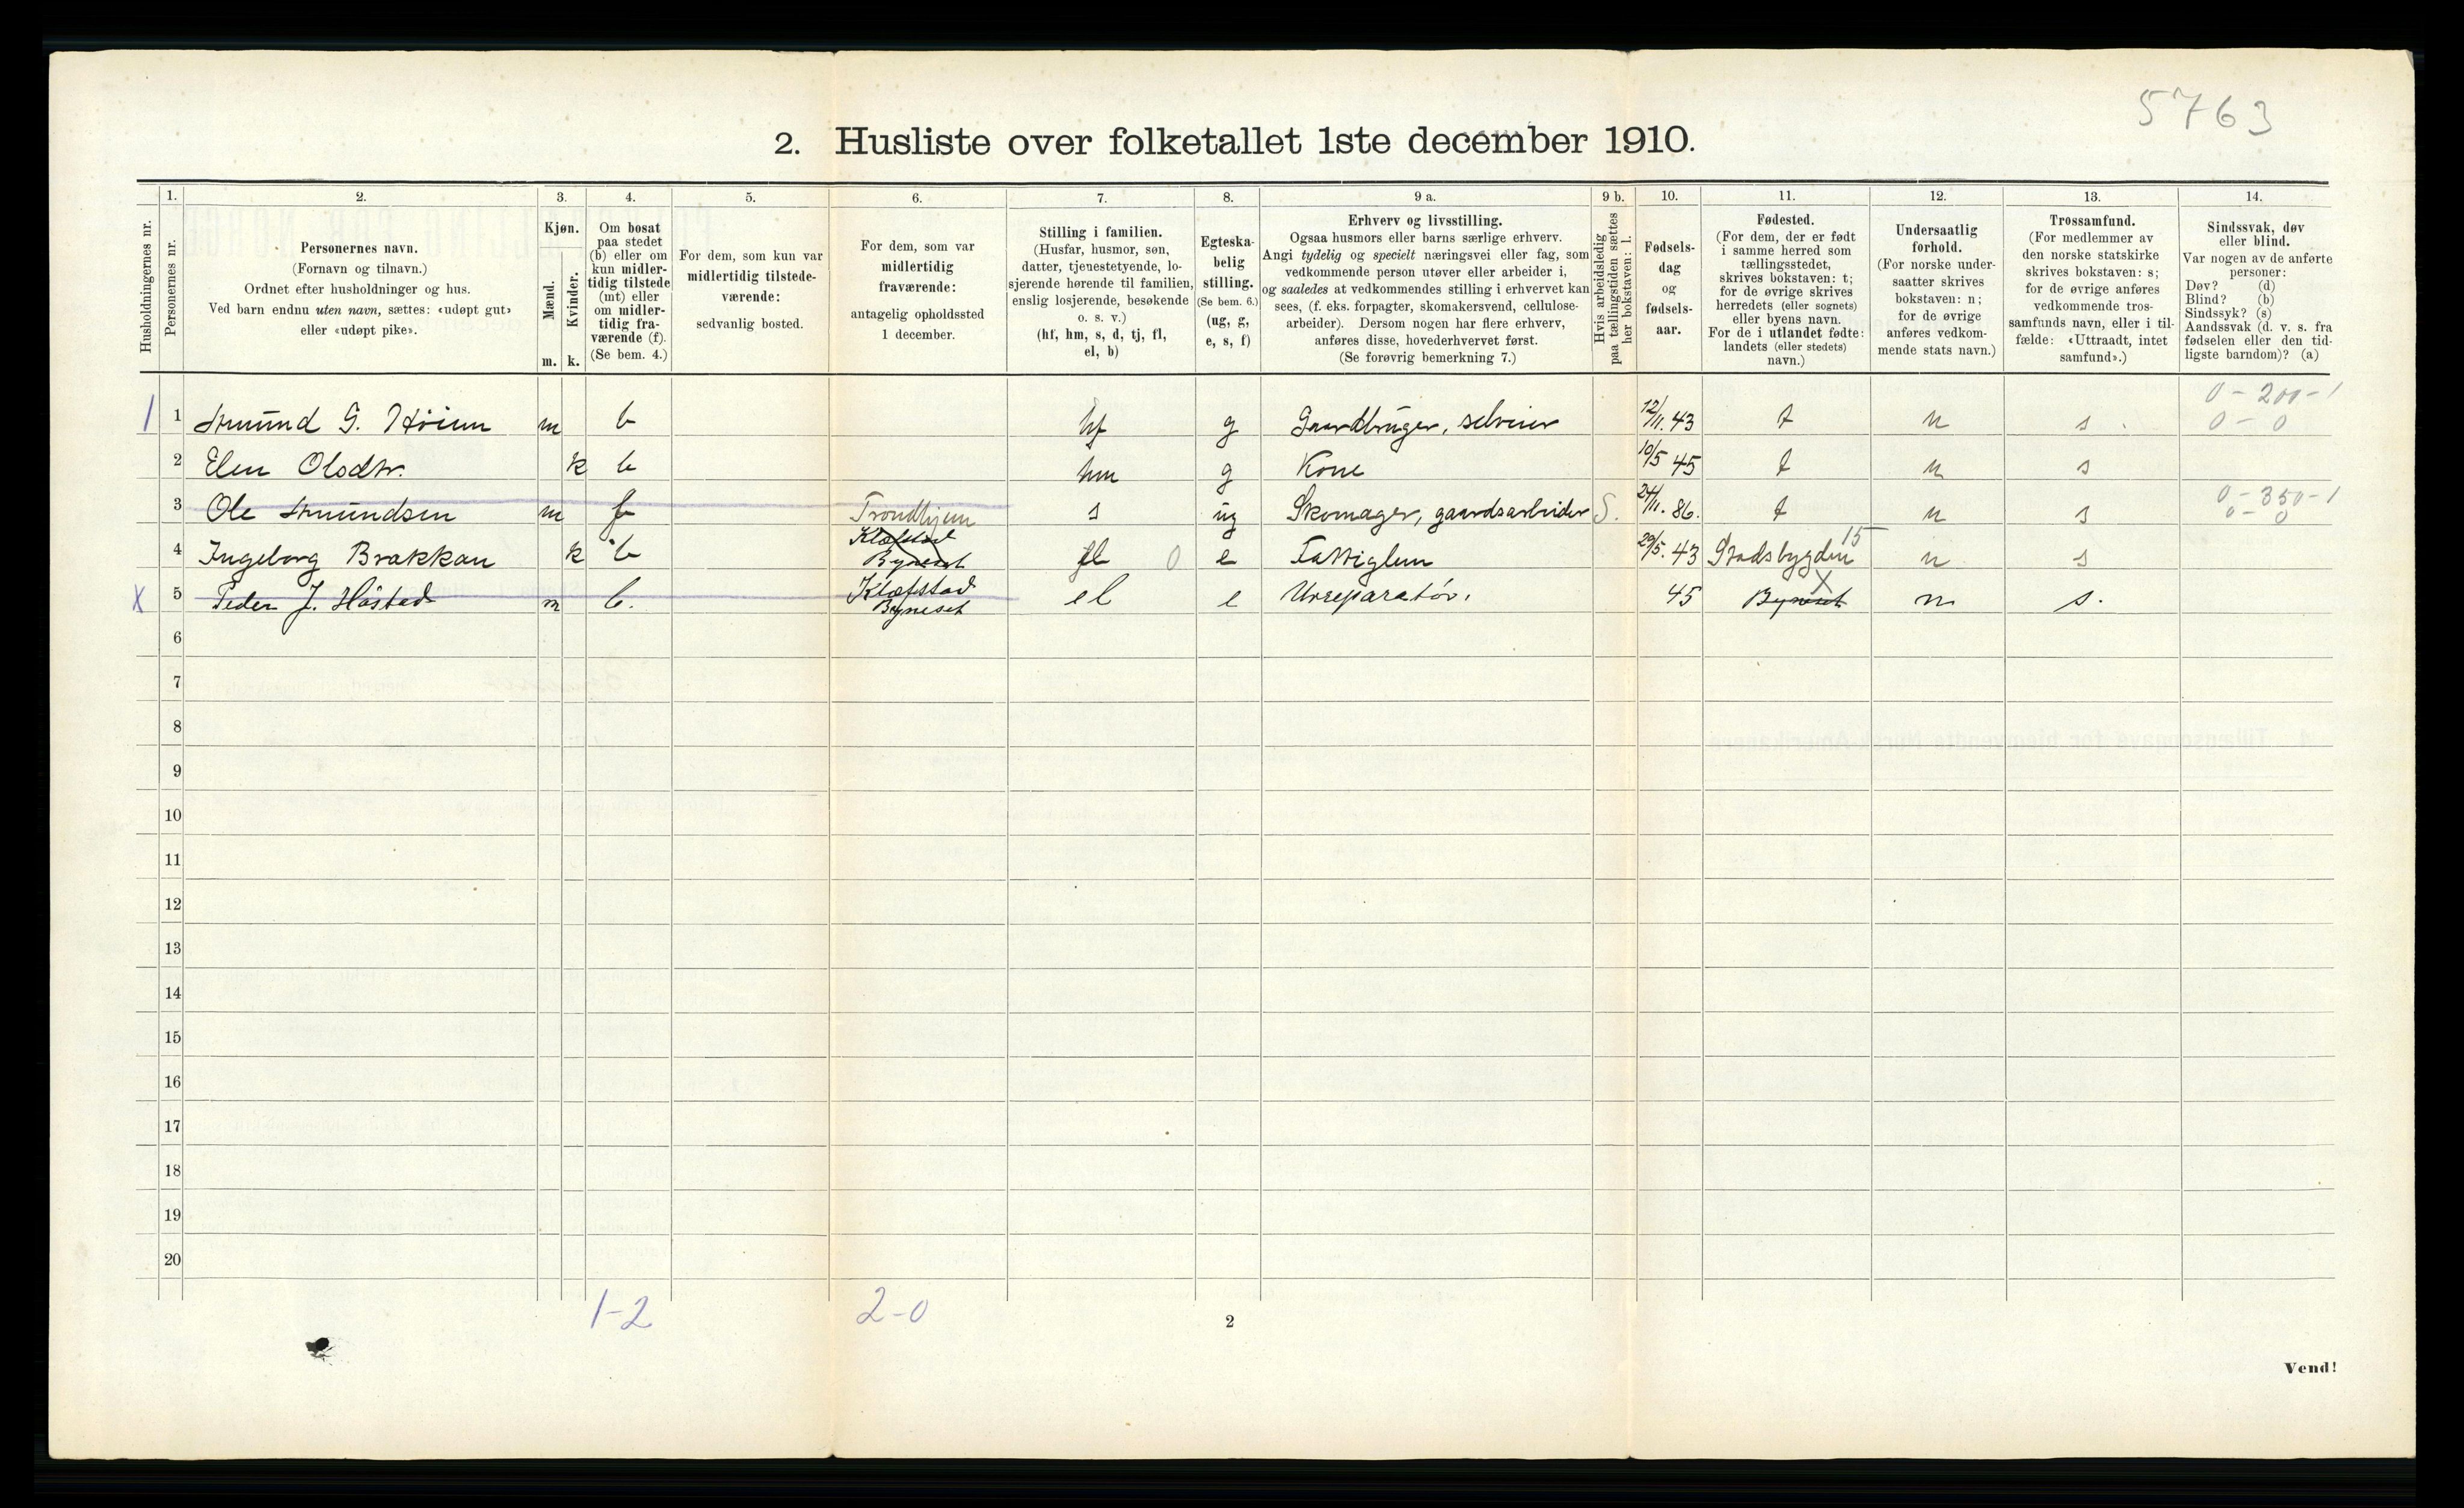 5763
2. Husliste over folketallet 1ste december 1910.
Husholdningernes nr.
1. Personernes nr.
2. Personernes navn.
(Fornavn og tilnavn.)
Ordnet efter husholdninger og hus.
Ved barn endnu uten navn, sættes: «udøpt gut»
eller «udøpt pike».
3. Kjøn.
Mænd. m.
Kvinder. k.
4. Om bosat
paa stedet
(b) eller om
kun midler-
tidig tilstede
(mt) eller
om midler-
tidig fra-
værende (f).
(Se bem. 4.)
5. For dem, som kun var
midlertidig tilstede-
værende:
sedvanlig bosted.
6. For dem, som var
midlertidig
fraværende:
antagelig opholdssted
1 december.
7. Stilling i familien.
(Husfar, husmor, søn,
datter, tjenestetyende, lo-
sjerende hørende til familien,
enslig losjerende, besøkende
o. s. v.)
(hf, hm, s, d, tj, fl,
el, b)
8. Egteska-
belig
stilling.
(Se bem. 6.)
(ug, g,
e, s, f)
9 a. Erhverv og livsstilling.
Ogsaa husmors eller barns særlige erhverv.
Angi tydelig og specielt næringsvei eller fag, som
vedkommende person utøver eller arbeider i,
og saaledes at vedkommendes stilling i erhvervet kan
sees, (f. eks. forpagter, skomakersvend, cellulose-
arbeider). Dersom nogen har flere erhverv,
anføres disse, hovederhvervet først.
(Se forøvrig bemerkning 7.)
9 b. Hvis arbeidsledig
paa tællingstiden sættes
her bokstaven: l.
10. Fødsels-
dag
og
fødsels-
aar.
11. Fødested.
(For dem, der er født
i samme herred som
tællingsstedet,
skrives bokstaven: t;
for de øvrige skrives
herredets (eller sognets)
eller byens navn.
For de i utlandet fødte:
landets (eller stedets)
navn.)
12. Undersaatlig
forhold.
(For norske under-
saatter skrives
bokstaven: n;
for de øvrige
anføres vedkom-
mende stats navn.)
13. Trossamfund.
(For medlemmer av
den norske statskirke
skrives bokstaven: s;
for de øvrige anføres
vedkommende tros-
samfunds navn, eller i til-
fælde: «Uttraadt, intet
samfund».)
14. Sindssvak, døv
eller blind.
Var nogen av de anførte
personer:
Døv? (d)
Blind? (b)
Sindssyk? (s)
Aandssvak (d. v. s. fra
fødselen eller den tid-
ligste barndom)? (a)
0 - 200 - 1
1 1 Amund G. Høien m b hf g Gaardbruger, selveier 12/11. 43 t n s 0 - 0
2 Elen Olsdtr. k b hm g Kone 10/5 45 t n s
0 - 350 - 1
3 Ole Amundsen m f Trondhjem s ug Skomager, gaardsarbeider S. 24/11. 86. t n s 0 - 0
Klæfstad 15
4 Ingeborg Brakkan k b Byneset fl 0 e Fattiglem 29/5. 43 Stadsbygden n s
Klæfstad X
X 5 Peder J. Håstad m b. Byneset el e Urreparatør. 45 Byneset n s.
6
7
8
9
10
11
12
13
14
15
16
17
18
19
20
1-2 2-0
2
Vend!